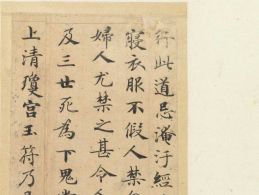 行此道忌淹汙經
寢衣服不假人禁
婦人尤禁之甚令人
及三世死為下鬼常
上清瓊宮玉符乃